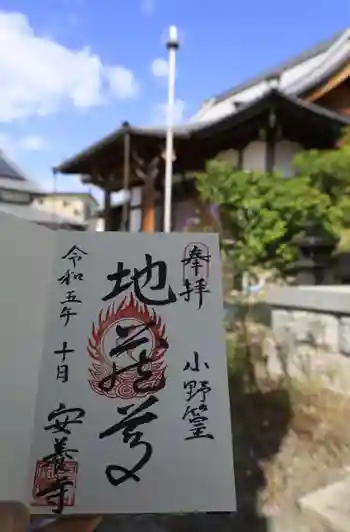 奉拝
小野篁
地蔵尊
令和五年十月
安養寺